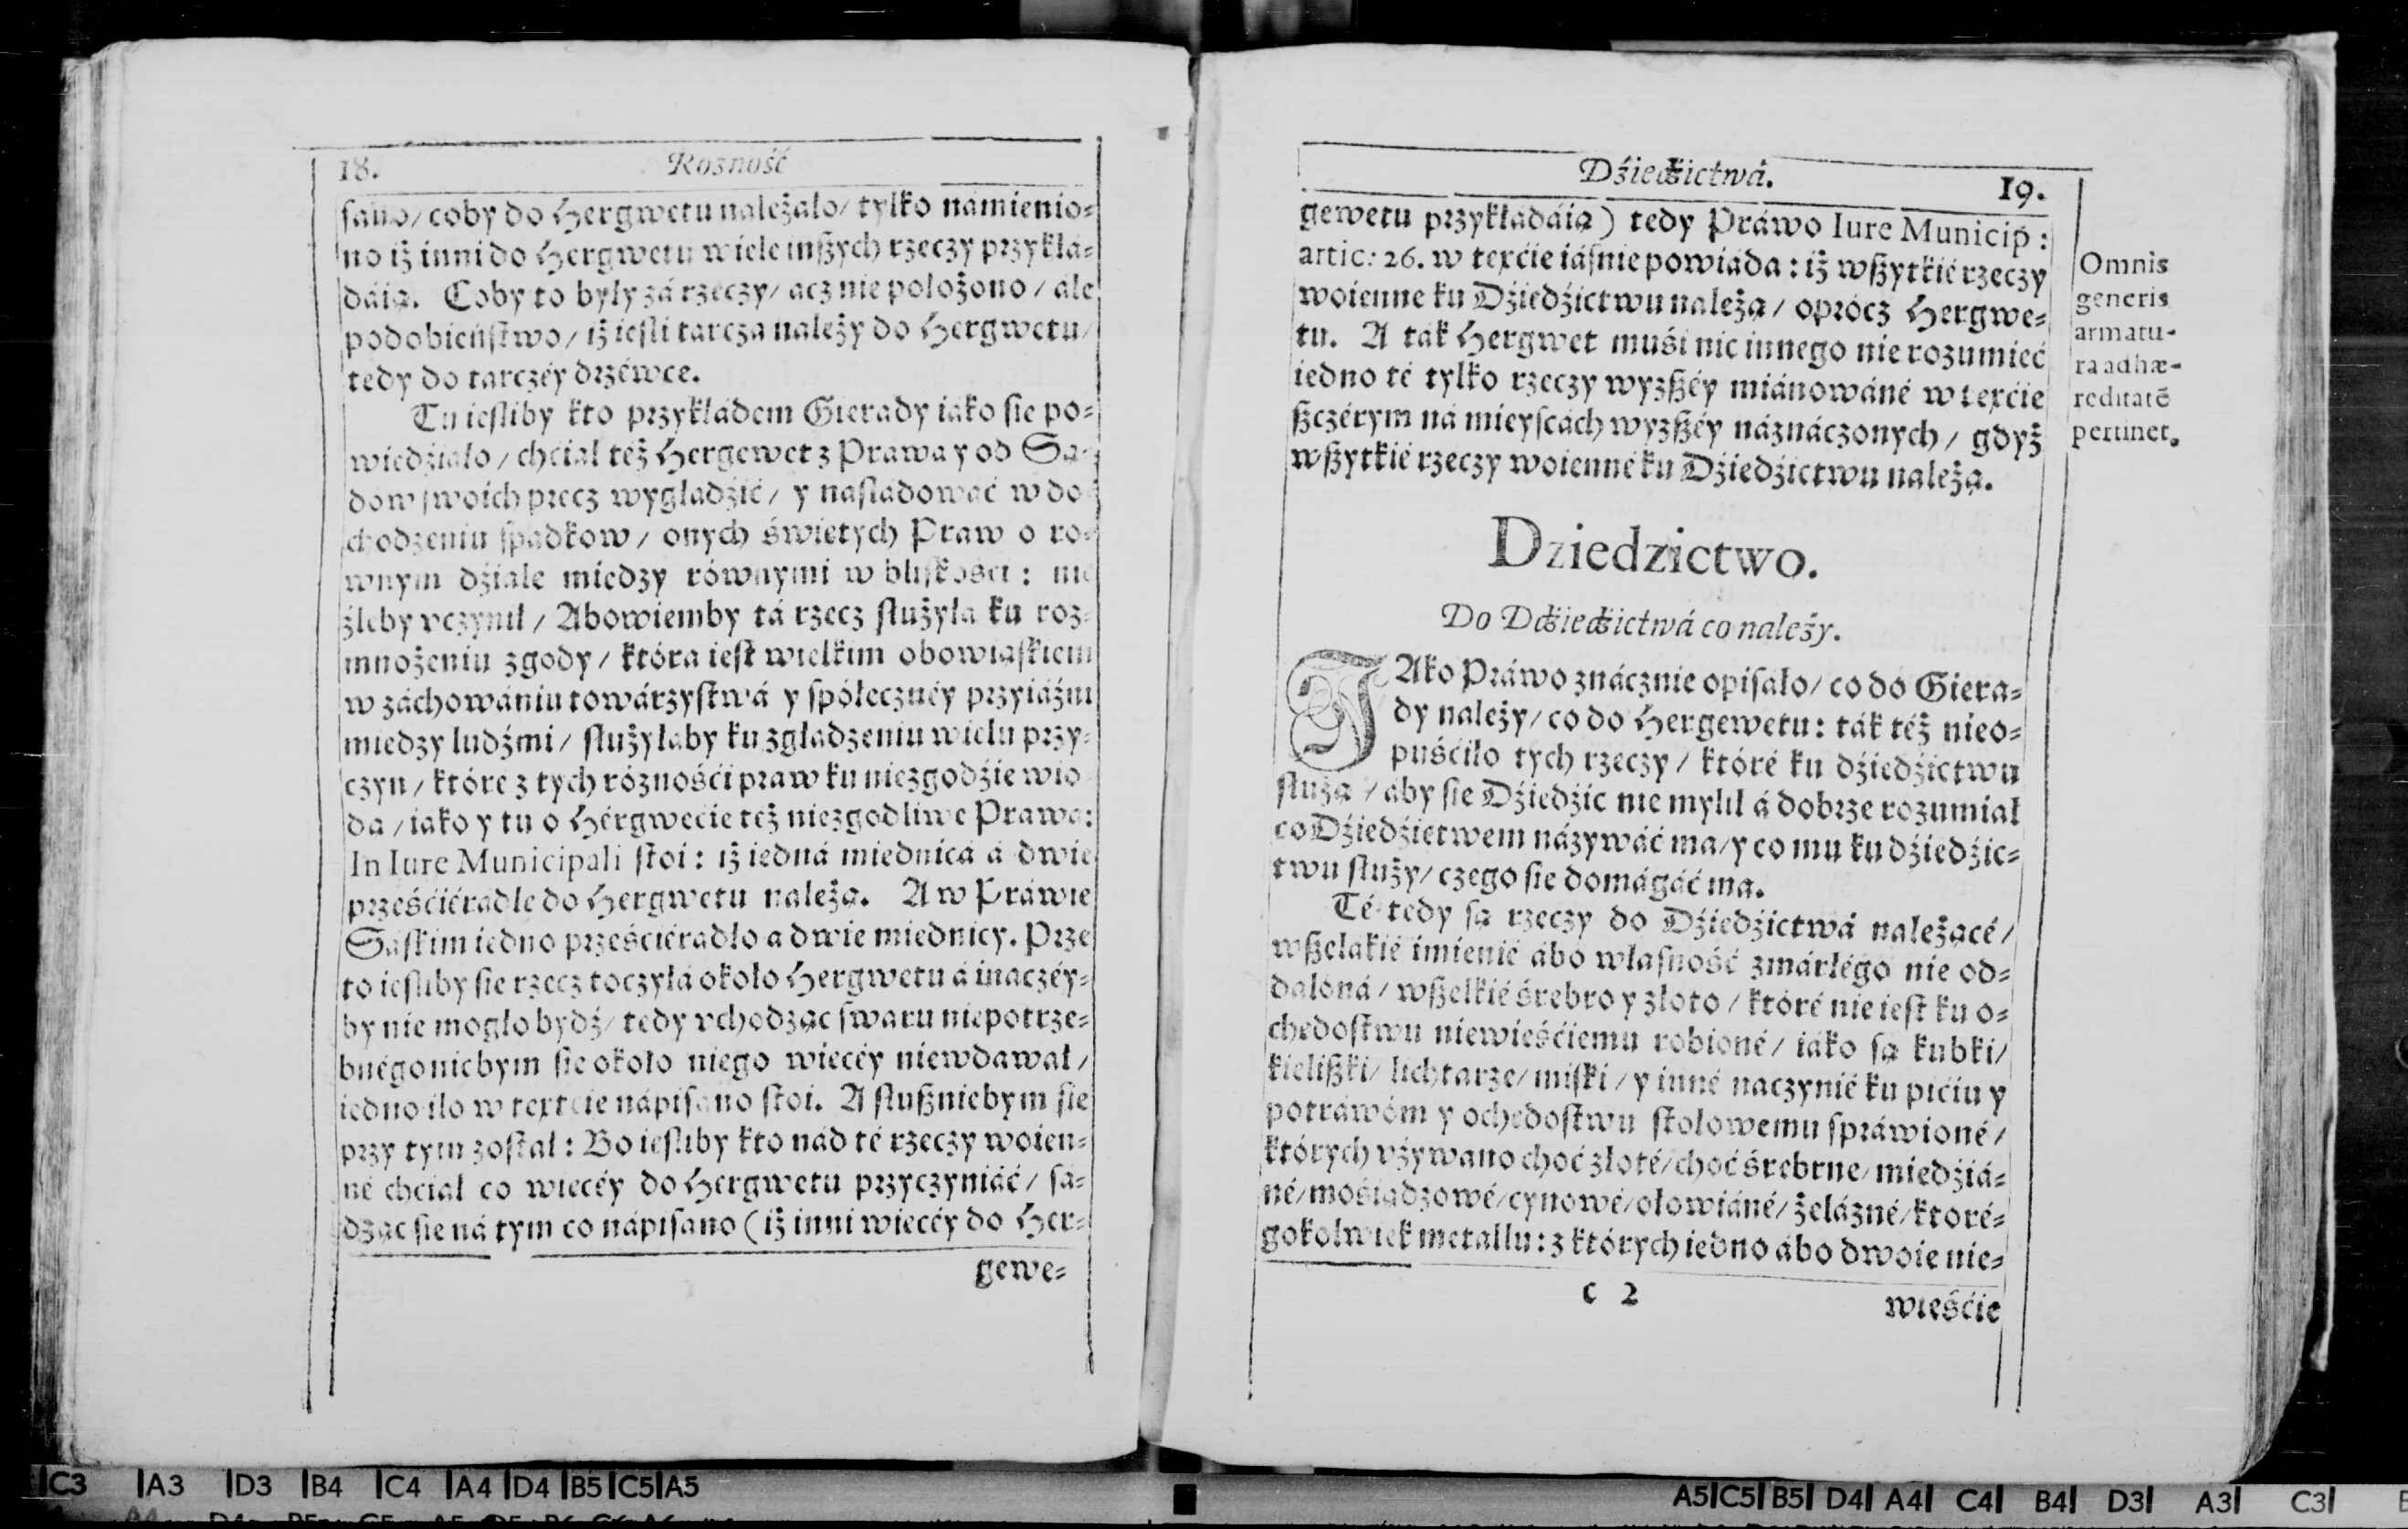 18. Rozność
sano/ coby do Hergwetu należało/ tylko námienio-
no iż inni do Hergwetu wiele inßych rzeczy przykłá-
dáią. Coby to były zá rzeczy/ acz nie położono/ ále
podobieństwo/ iż iesli tarcza należy do Hergwetu/
tedy do tarczéy drzéwce.
Tu iesliby kto przykłádem Gierady iáko sie po-
wiedźiało/ chciał też Hergewet z Prawa y od Sa-
dow swoich precz wygładźić/ y nasladowáć w do-
chodzeniu spadkow/ onych świetych Praw o ro-
wnym dźiale miedzy równymi w bliskości: nie
źleby vczynił/ Abowiemby tá rzecz służyła ku roz-
mnożeniu zgody/ która iest wielkim obowiąskiem
w záchowániu towárzystwá y społecznéy przyiáźni
miedzy ludźmi/ służyłaby ku zgładzeniu wielu przy-
czyn/ które z tych róznośći praw ku niezgodźie wio
dą/ iako y tu o Hérgwećie też niezgodliwe Prawo:
In Iure Municipali stoi: iż iedná miednicá á dwie
prześćiéradle do Hergwetu należą. A w Práwie
Sáskim iedno prześćiéradło a dwie miednicy. Prze
to iesliby sie rzecz toczyłá około Hergwetu á ináczéy-
by nie mogło bydź/ tedy vchodząc swaru niepotrze-
bnégo nicbym sie około niego wiecéy niewdawał/
iedno ilo w textćie nápisano stoi. A słußniebym sie
przy tym został: Bo iesliby kto nád té rzeczy woien-
né chciał co wiecéy do Hergwetu przyczyniáć/ sa-
dząc sie ná tym co nápisano (iż inni wiecéy do Her-
gewe-
Dźiedźictwá. 19.
gewetu przykłádáią) tedy Práwo Iure Municip:
artic: 26. w texćie iásnie powiáda: iż wßytkié rzeczy
woienne ku Dźiedźictwu należą/ oprócz Hergwe-
tu. A ták Hergwet muśi nic innego nie rozumieć
iedno té tylko rzeczy wyzßéy miánowáné w texćie
ßczérym ná mieyscách wyzßéy náznáczonych/ gdyż
wßytkié rzeczy woienné ku Dźiedźictwu należą.
Omnis
generis
armatu-
ra ad hæ-
reditatē
pertinet.
Dziedzictwo.
Do Dźiedźictwá co należy.
JAko Práwo znácznie opisáło/ co do Giera-
dy należy/ co do Hergewetu: ták też nieo-
puśćiło tych rzeczy/ któré ku dźiedźictwu
służą/ áby sie Dźiedźic nie mylił á dobrze rozumiał
co Dźiedźictwem názywáć ma/ y co mu ku dźiedźic-
twu służy/ czego sie domágáć ma.
Té tedy są rzeczy do Dźiedźictwá należącé/
wßelakié imienié ábo własność zmárłégo nie od-
dalóná/ wßelkié śrebro y złoto/ któré nie iest ku o-
chedostwu niewieśćiemu robioné/ iáko są kubki/
kielißki/ lichtarze/ miski/ y inné naczynié ku pićiu y
potráwóm y ochedostwu stołowemu spráwioné/
których vżywano choć złoté/ choć śrebrne/ miedźiá-
né/ mośiądzowé/ cynowé/ ołowiáné/ żelázné/ ktoré-
gokolwiek metallu: z których iedno ábo dwoie nie-
C 2 wieśćie
C3 A3 D3 B4 C4 A4 D4 B5 C5 A5
A5 C5 B5 D4 A4 C4 B4 D3 A3 C3